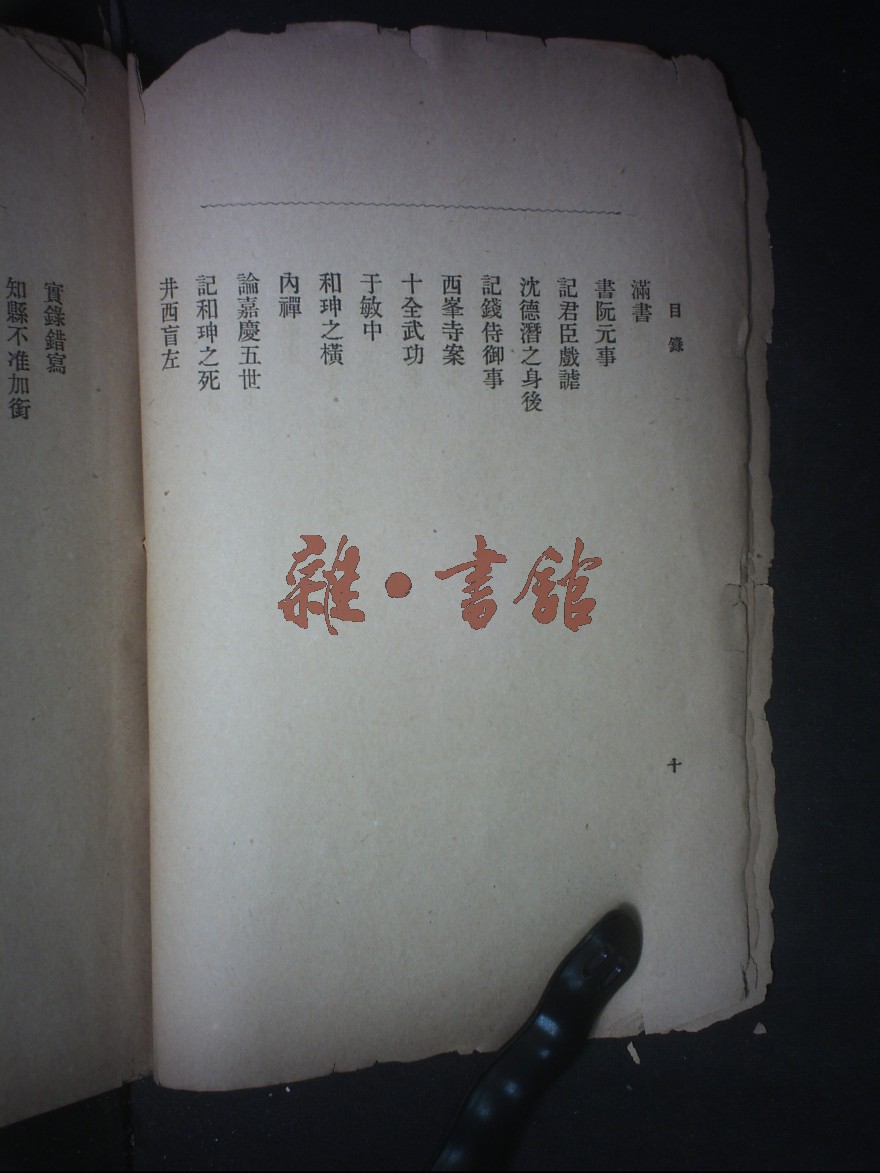 目錄
滿書
書阮元事
記君臣戲謔
沈德潛之身後
記錢侍御事
西峯寺案
十全武功
于敏中
和珅之橫
內禪
論嘉慶五世
記和珅之死
井西盲左
十
實錄錯寫
知縣不准加銜
雜·書館